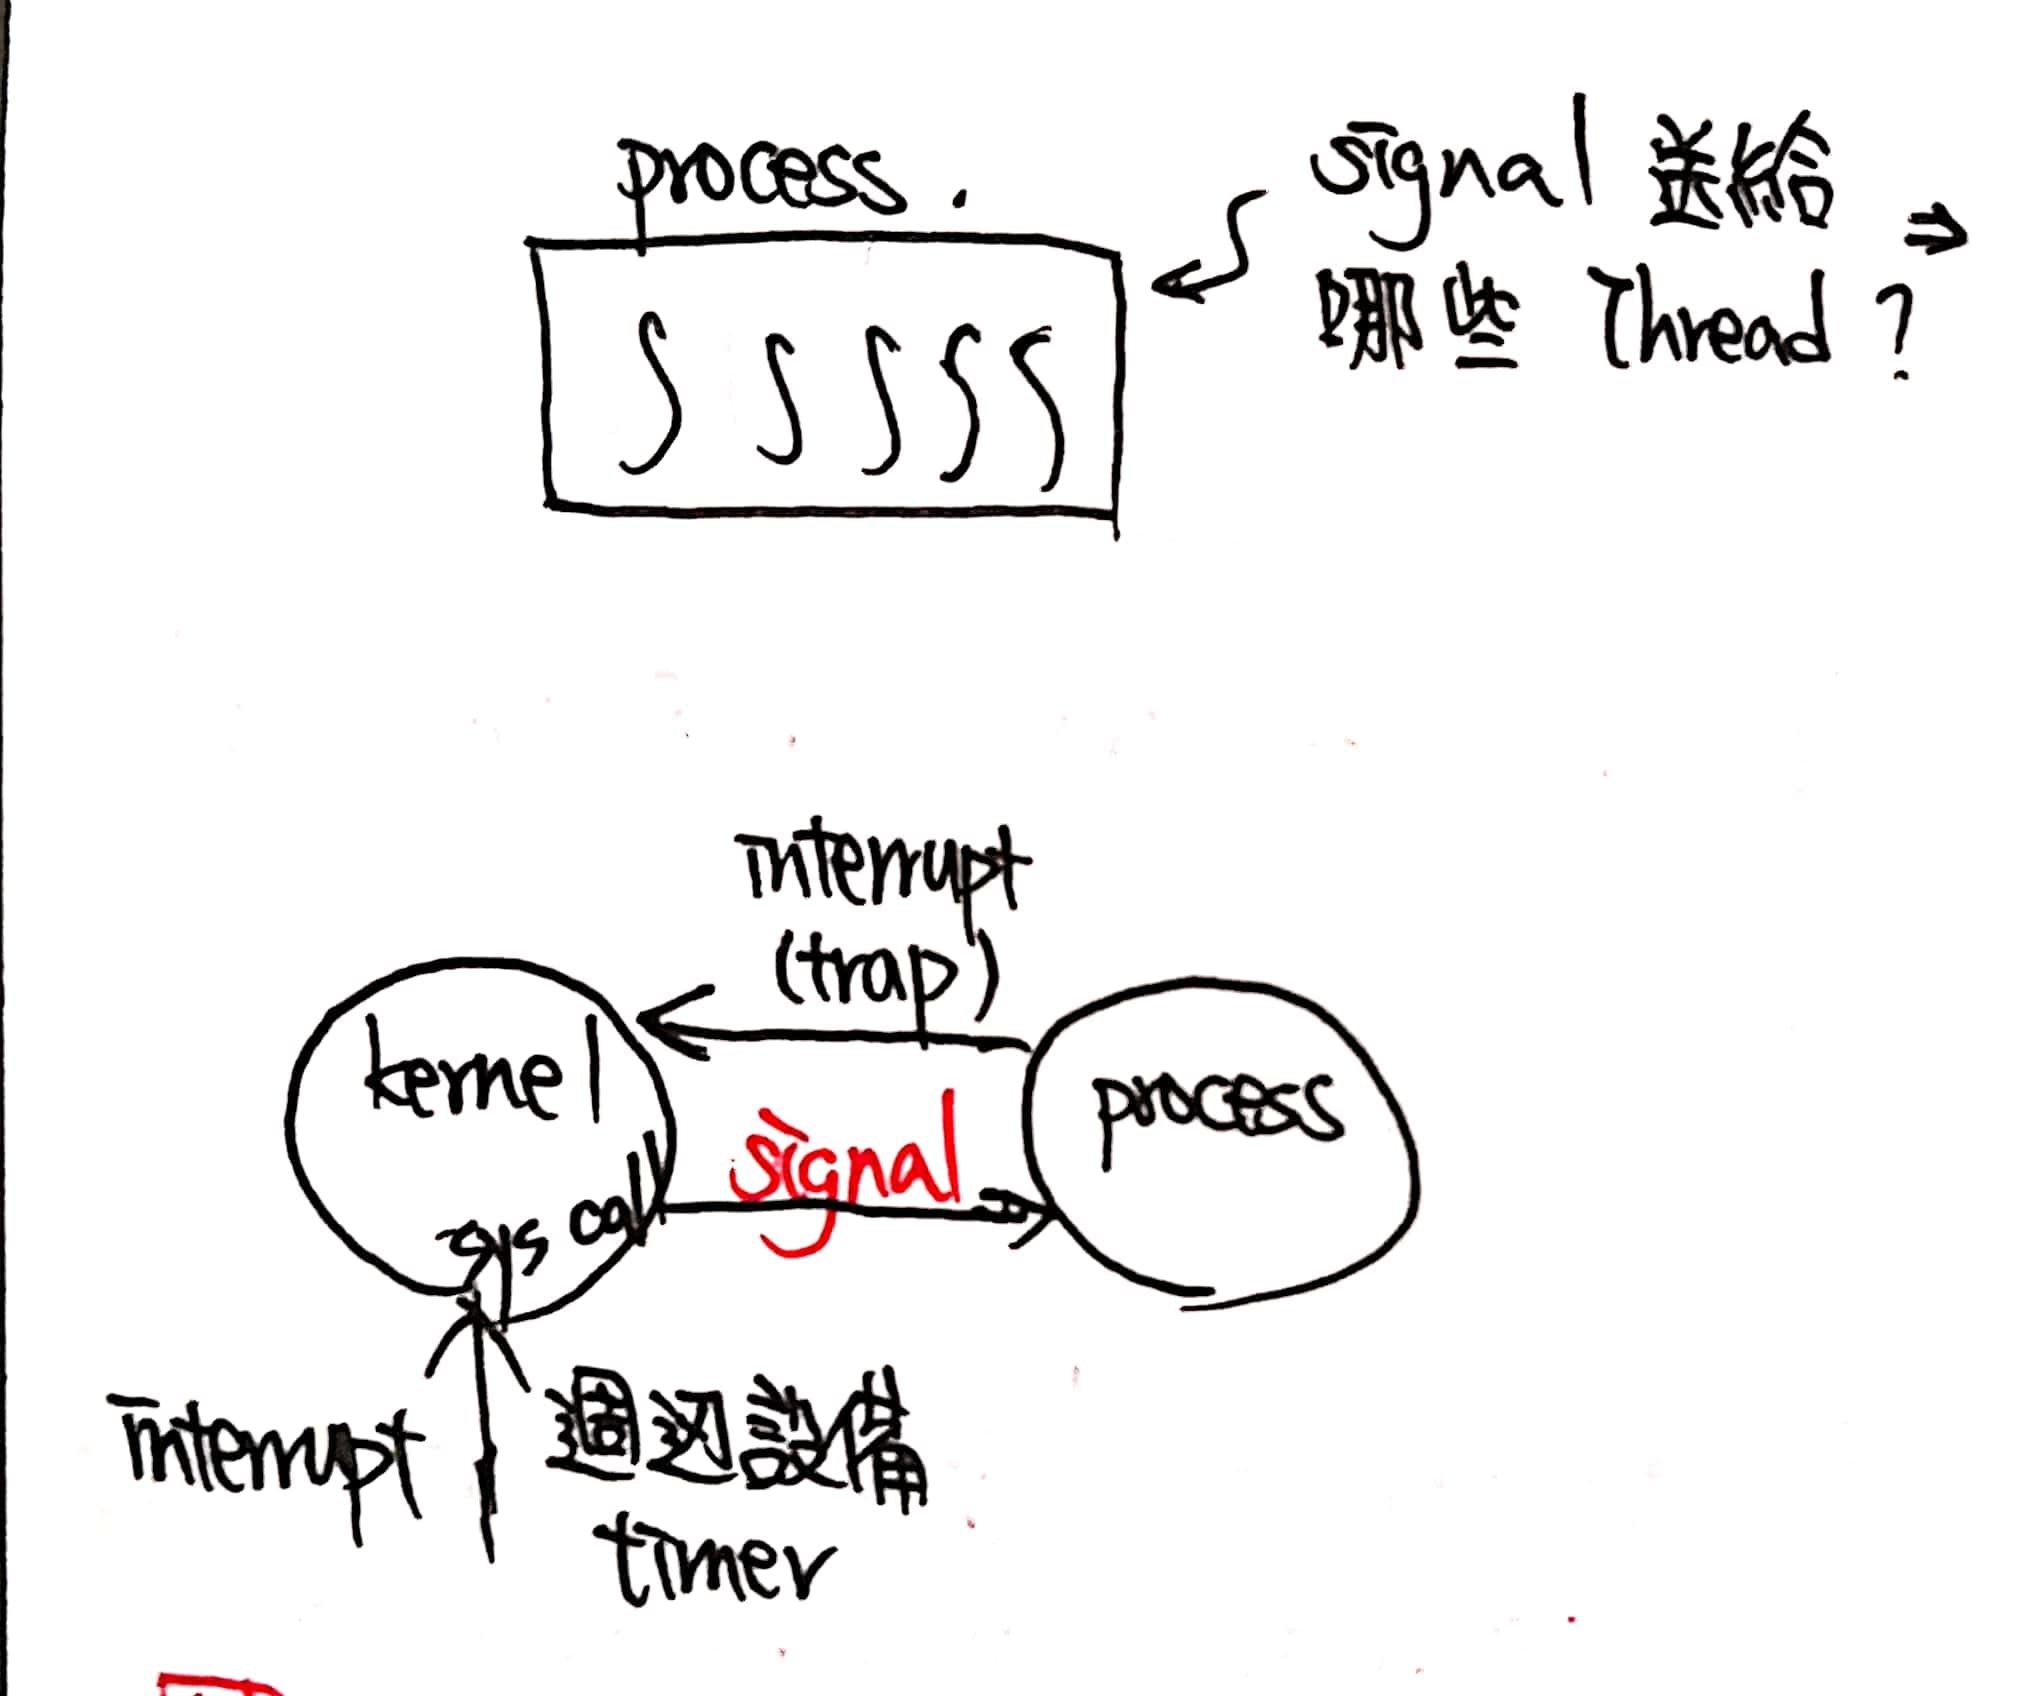 process.
signal 送給
哪些 Thread ?
⇒
interrupt
(trap)
kernel
process
signal
sys call
interrupt
週边設備
timer